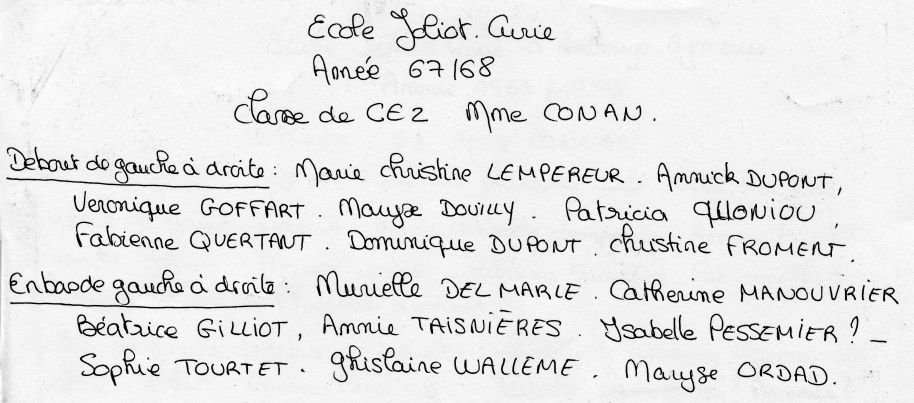 Ecole Joliot. Curie
Année 67/68
Classe de CE2 Mme CONAN.
Debout de gauche à droite : Marie Christine LEMPEREUR. Annick DUPONT,
Veronique GOFFART. Maryse DOUILLY. Patricia QUONIOU,
Fabienne QUERTANT. Dominique DUPONT. Christine FROMENT.
En bas de gauche à droite : Murielle DELMARLE. Catherine MANOUVRIER
Béatrice GILLIOT, Annie TAISNIÈRES. Ysabelle PESSEMIER? _
Sophie TOURTET. Ghislaine WALLEME. Maryse ORDAD.